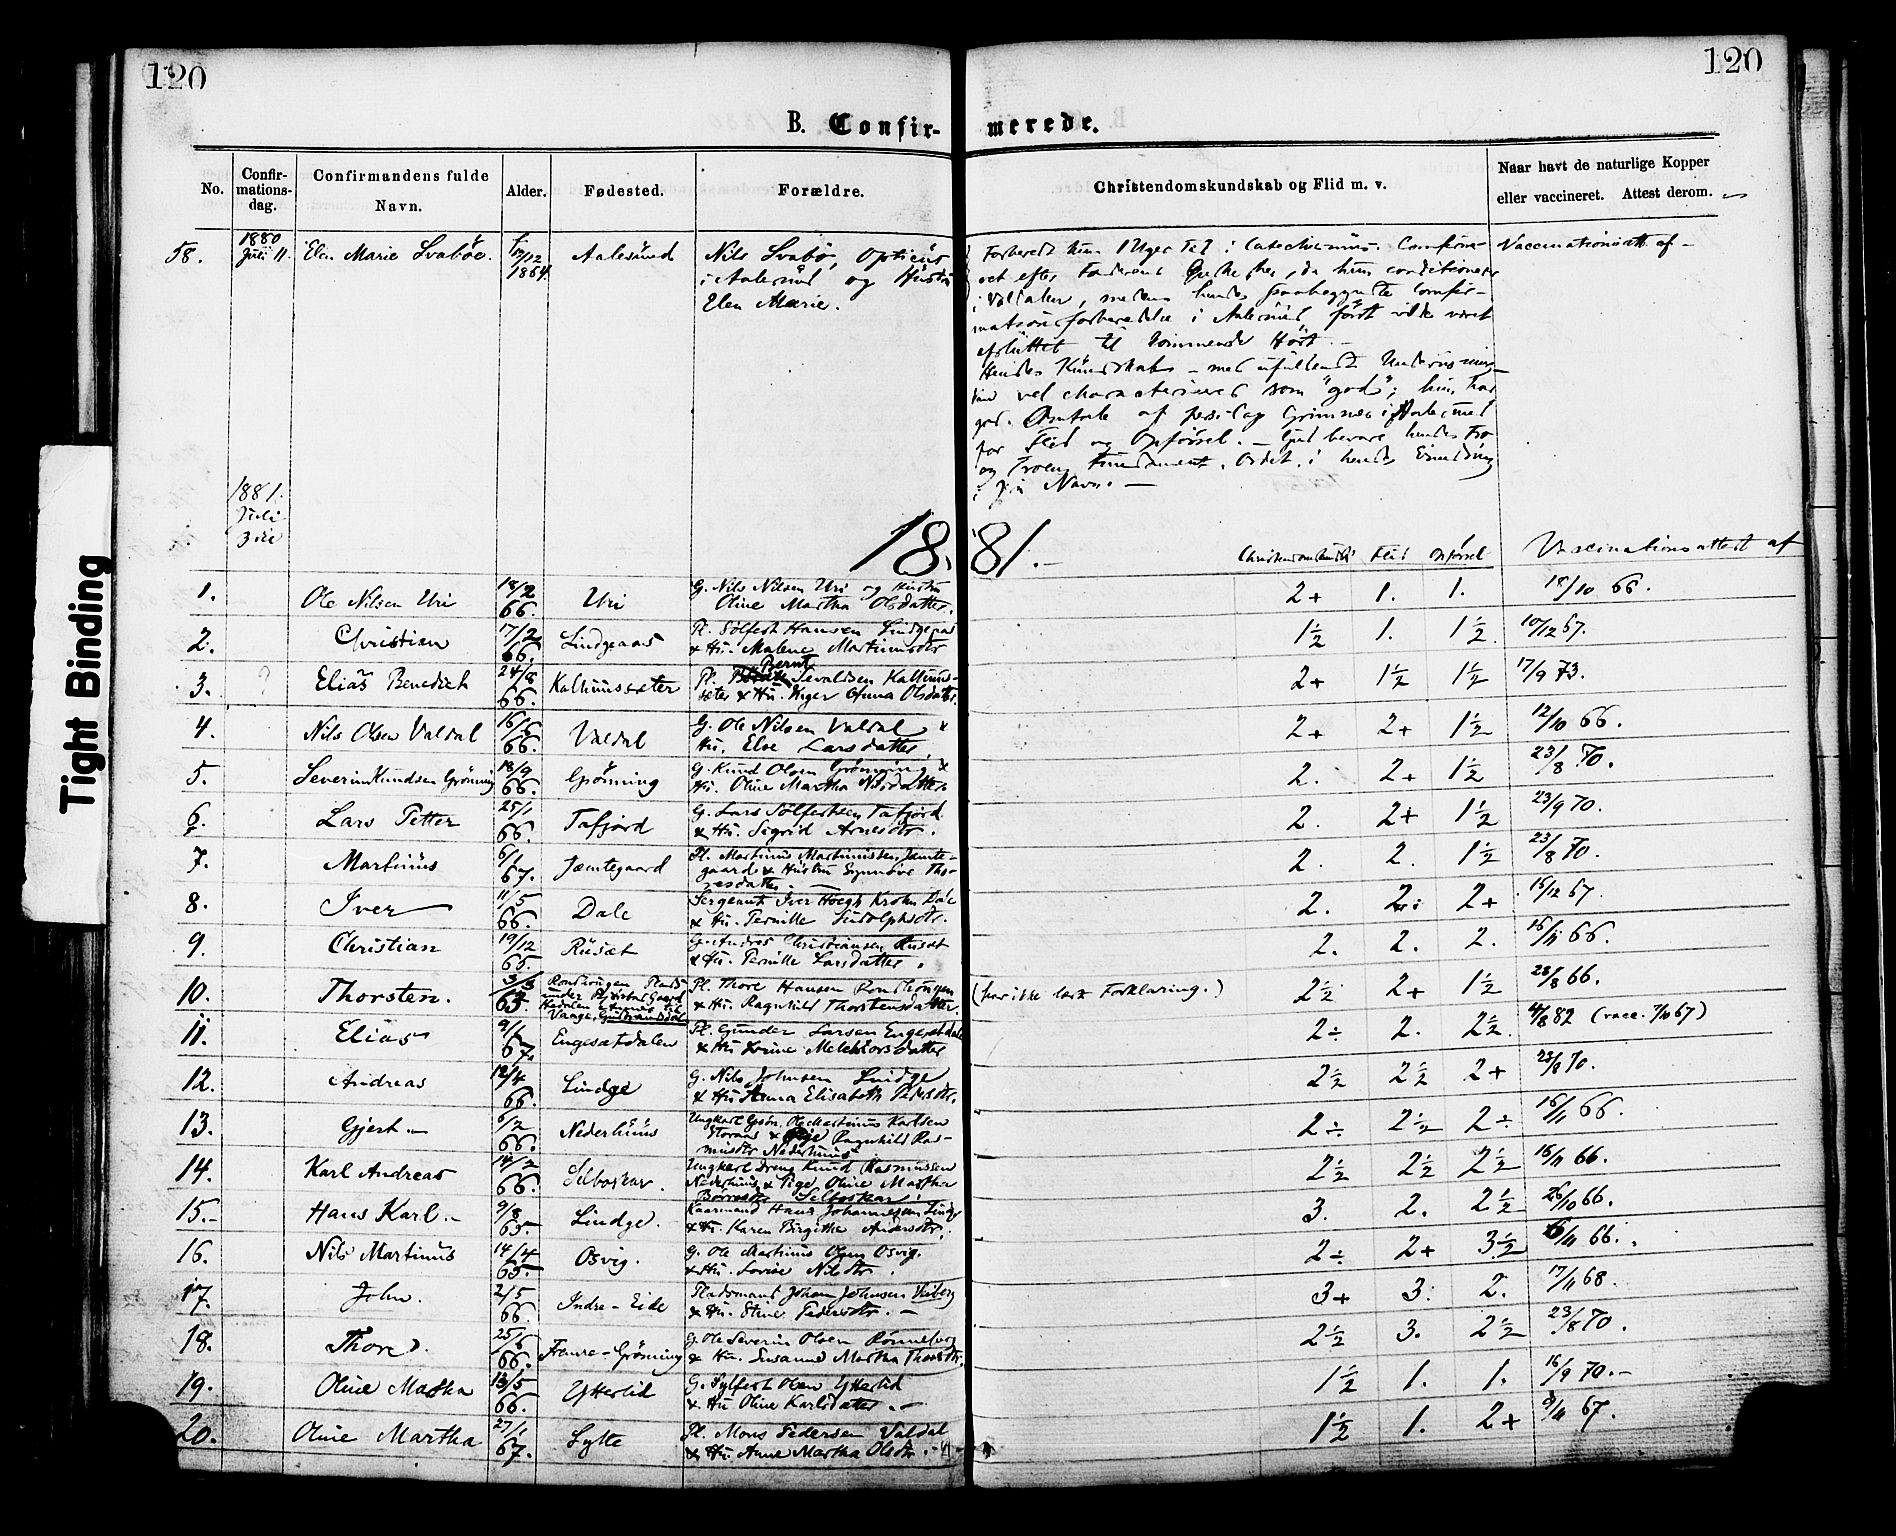 120
120
B. Confir-
merede.
No.
Confir-
mations-
dag.
Confirmandens fulde
Navn.
Alder.
Fødested.
Forældre.
Christendomskundskab og Flid m. v.
Naar havt de naturlige Kopper
eller vaccineret. Attest derom.
58.
1880
Juli 11.
Elen Marie Svabøe.
12/12
1864
Aalesund
Nils Svabö, Opticus
i Aalesund og Hustru
Elen Marie.
Forberedt kun 1 Uge Tid i Catechismus. Confirme-
ret efter Forældrenes
i Valdalen, medens hendes paabegyndte Confir-
mationsforberedelse i Aalesund først vilde været
afsluttet til kommende Höst.
Hendes Kundskab
vel characteriseret som "god"; hun har
god Omtale af Grimnes i Aalesund
for Flid og Opførsel. - Gud bevare hendes Tro
og Troens Fundament, Ordet, i hendes
i Jesu Navn. -
Vaccinationsatt. af -
1881.
Juli
3die
18.81.-
Flid Opførsel
Vaccinationsattest af
1. Ole Nilsen Uri 18/2 66. Uri G. Nils Nilsen Uri og Hustru
Oline Martha Olsdatter. 2+ 1. 1. 18/10 66.
2. Christian 17/2 66. Lindgaard Pl. Sølfest Hansen Lindgaard
& Hu. Malene Martinusdtr 1½ 1. 1½ 10/12 67.
3. ? Elias Benedict 24/8 66. Kalhuussæter Pl. Bernt Sevaldsen Kalhuus-
sæter & Hu. Inger Anna Olsdatter. 2+ 1½ 1½ 17/9 73.
4. Nils Olsen Valdal 16/6 66. Valdal G. Ole Nilsen Valdal &
Hu. Else Larsdatter. 2+ 2+ 1½ 12/10 66.
5. Severin Knudsen Grønning 18/9 66. Grønning G. Knud Olsen Grønning &
Hu. Oline Martha Nilsdatter 2. 2+ 1½ 23/8 70.
6. Lars Petter 25/1 66. Tafjord G. Lars Sølfestsen Tafjord
& Hu. Sigrid Arnesdtr. 2. 2+ 1½ 23/9 70.
7. Martinus 6/1 67. Jæmtegaard Pl. Martinus Martinussen Jamte-
gaard & Hustru Synnöve Tho-
resdatter. - 2. 2. 1½ 23/8 70.
8. Iver 11/5 66. Dale Sergeant Iver Høegh Krohn Dale
& Hu. Pernille Ludolphsdtr. 2. 2÷ 2+ 16/12 67.
9. Christian 19/12 65. Rüsæt G. Andres Christiansen Rusæt
& Hu. Pernille Larsdatter. 2. 2. 2. 16/11 66.
10. Thorsten. 3/3 65. Rondhøugen Plads
under
Vaage, Gudbrandsdal Pl. Thore Hansen Rondhöugen
& Hu. Ragnhild Thorstensdatter. (har ikke læst Forklaring.) 2½ 2+ 1½ 28/8 66.
11. Elias 9/6 67. Engesætdalen Pl. Gunder Larsen Engesætdalen
& Hu. Melchiorsdatter 2÷ 2. 2½ 4/8 82 (vacc. 7/10 67)
12. Andreas 12/4 66. Lindge G. Nils Johnsen Lindge
& Hu. Anna Elisabeth Petersdtr. 2½ 2½ 2+ 23/8 70.
13. Gjert.- 6/2 66. Nederhuus Ungkarl Gsøn. Ole Martinus Karlsen
Storaas & Pige Ragnhild Ras-
musdtr Nederhuus 2÷ 2½ 2÷ 16/11 66.
14. Karl Andreas 14/2 66. Selboskar. Ungkarl Dreng Knud Rasmussen
Nederhuus & Pige Oline Martha
Selboskar. 2½ 2½ 2½ 16/11 66.
15.- Hans Karl.- 9/8 65. Lindge. Kaarmand Hans Johannessen Lindge
& Hu. Karen Birgitha Andersdtr. 3. 2. 2½ 26/10 66.
16. Nils Martinus 14/4 65. Osvig. G. Ole Martinus Olsen Osvig.
& Hu. Lovise Nilsdtr. 2÷ 2+ 3½ 6/11 66.
17. John. 2/5 66. Indre-Eide Pladsmand Johan Johnsen Viiberg
& Hu. Stine Pedersdtr. - 3+ 3. 2. 17/11 68.
18. Thore. 25/5 66. Fremre-Grønning G. Ole Severin Olsen Rønneberg
& Hu. Susanne Martha Thoresdtr. 2½ 3. 2½ 23/8 70.
19. Oline Martha 13/5 66. Ytterlid G. Sylfest Olsen Ytterlid
& Hu Oline Karlsdatter.- 1½ 1. 1. 16/9 70.-
20. Oline Martha 27/1 67. Lytte Pl. Mons Pedersen Valdal
& Hu. Anne Martha Olsdtr. 1½ 1. 2+ 9/11 67.
Tight Binding